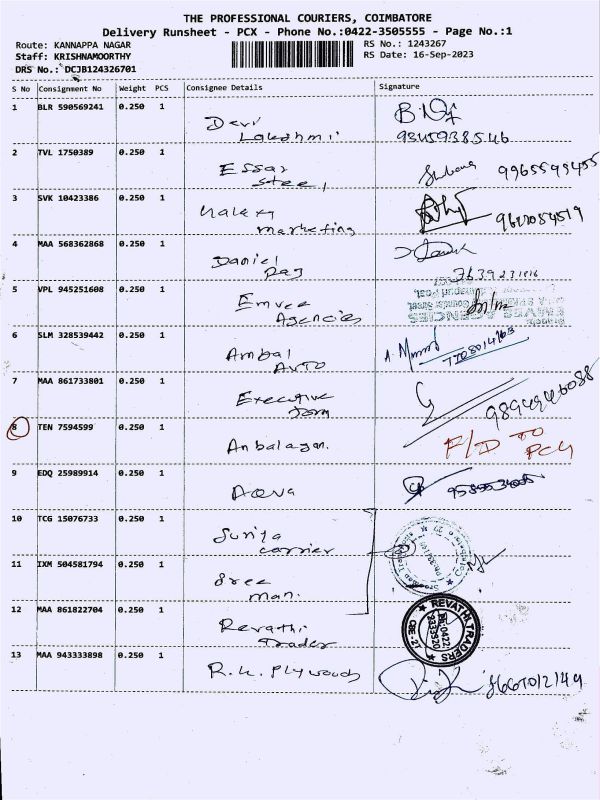 THE PROFESSIONAL COURIERS, COIMBATORE
Delivery Runsheet - PCX - Phone No.:0422-3505555 - Page No.:1
Route: KANNAPPA NAGAR
RS No.: 1243267
Staff: KRISHNAMOORTHY
RS Date: 16-Sep-2023
DRS No.: DCJB124326701
S No Consignment No Weight PCS Consignee Details Signature
1 BLR 590569241 0.250 1
Devi
Lakshmi 9345938546
2 TVL 1750389 0.250 1
Essar
Steel, 9965599455
3 SVK 10423386 0.250 1
marketing
4 MAA 568362868 0.250 1
Daniel
Raj
5 VPL 945251608 0.250 1
Emvee
Agencies
6 SLM 328539442 0.250 1
Ambal
Auto
7 MAA 861733801 0.250 1
Executive
9894946088
8 TEN 7594599 0.250 1
Anbalagan. F/D TO
9 EDQ 25989914 0.250 1
10 TCG 15076733 0.250 1
carrier
11 IXM 504581794 0.250 1
Sree
mani
12 MAA 861822704 0.250 1
Revathi
Trader
REVATHI TRADERS
CBE-21
13 MAA 943333898 0.250 1
R.K. Plywoods